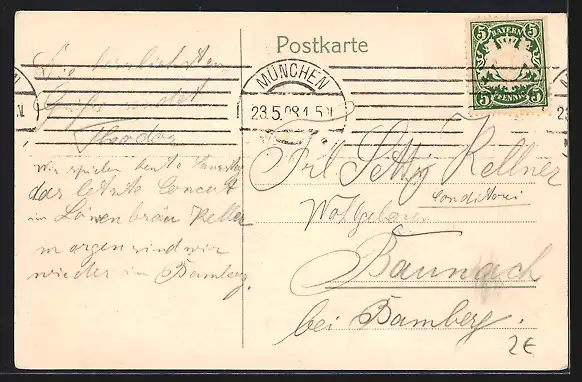 Postkarte
Die herzlichsten
Grüße sendet
Wir spielen heute Samstag
das letzte Concert
im Löwenbräu Keller
morgen sind wir
wieder in Bamberg.
MÜNCHEN
23.5.08 4-5 N
BAYERN
5 5
5 5
PFENNIG
Frl. Kellner
Conditorei
Wohlgeboren
Baunach
bei Bamberg.
2€